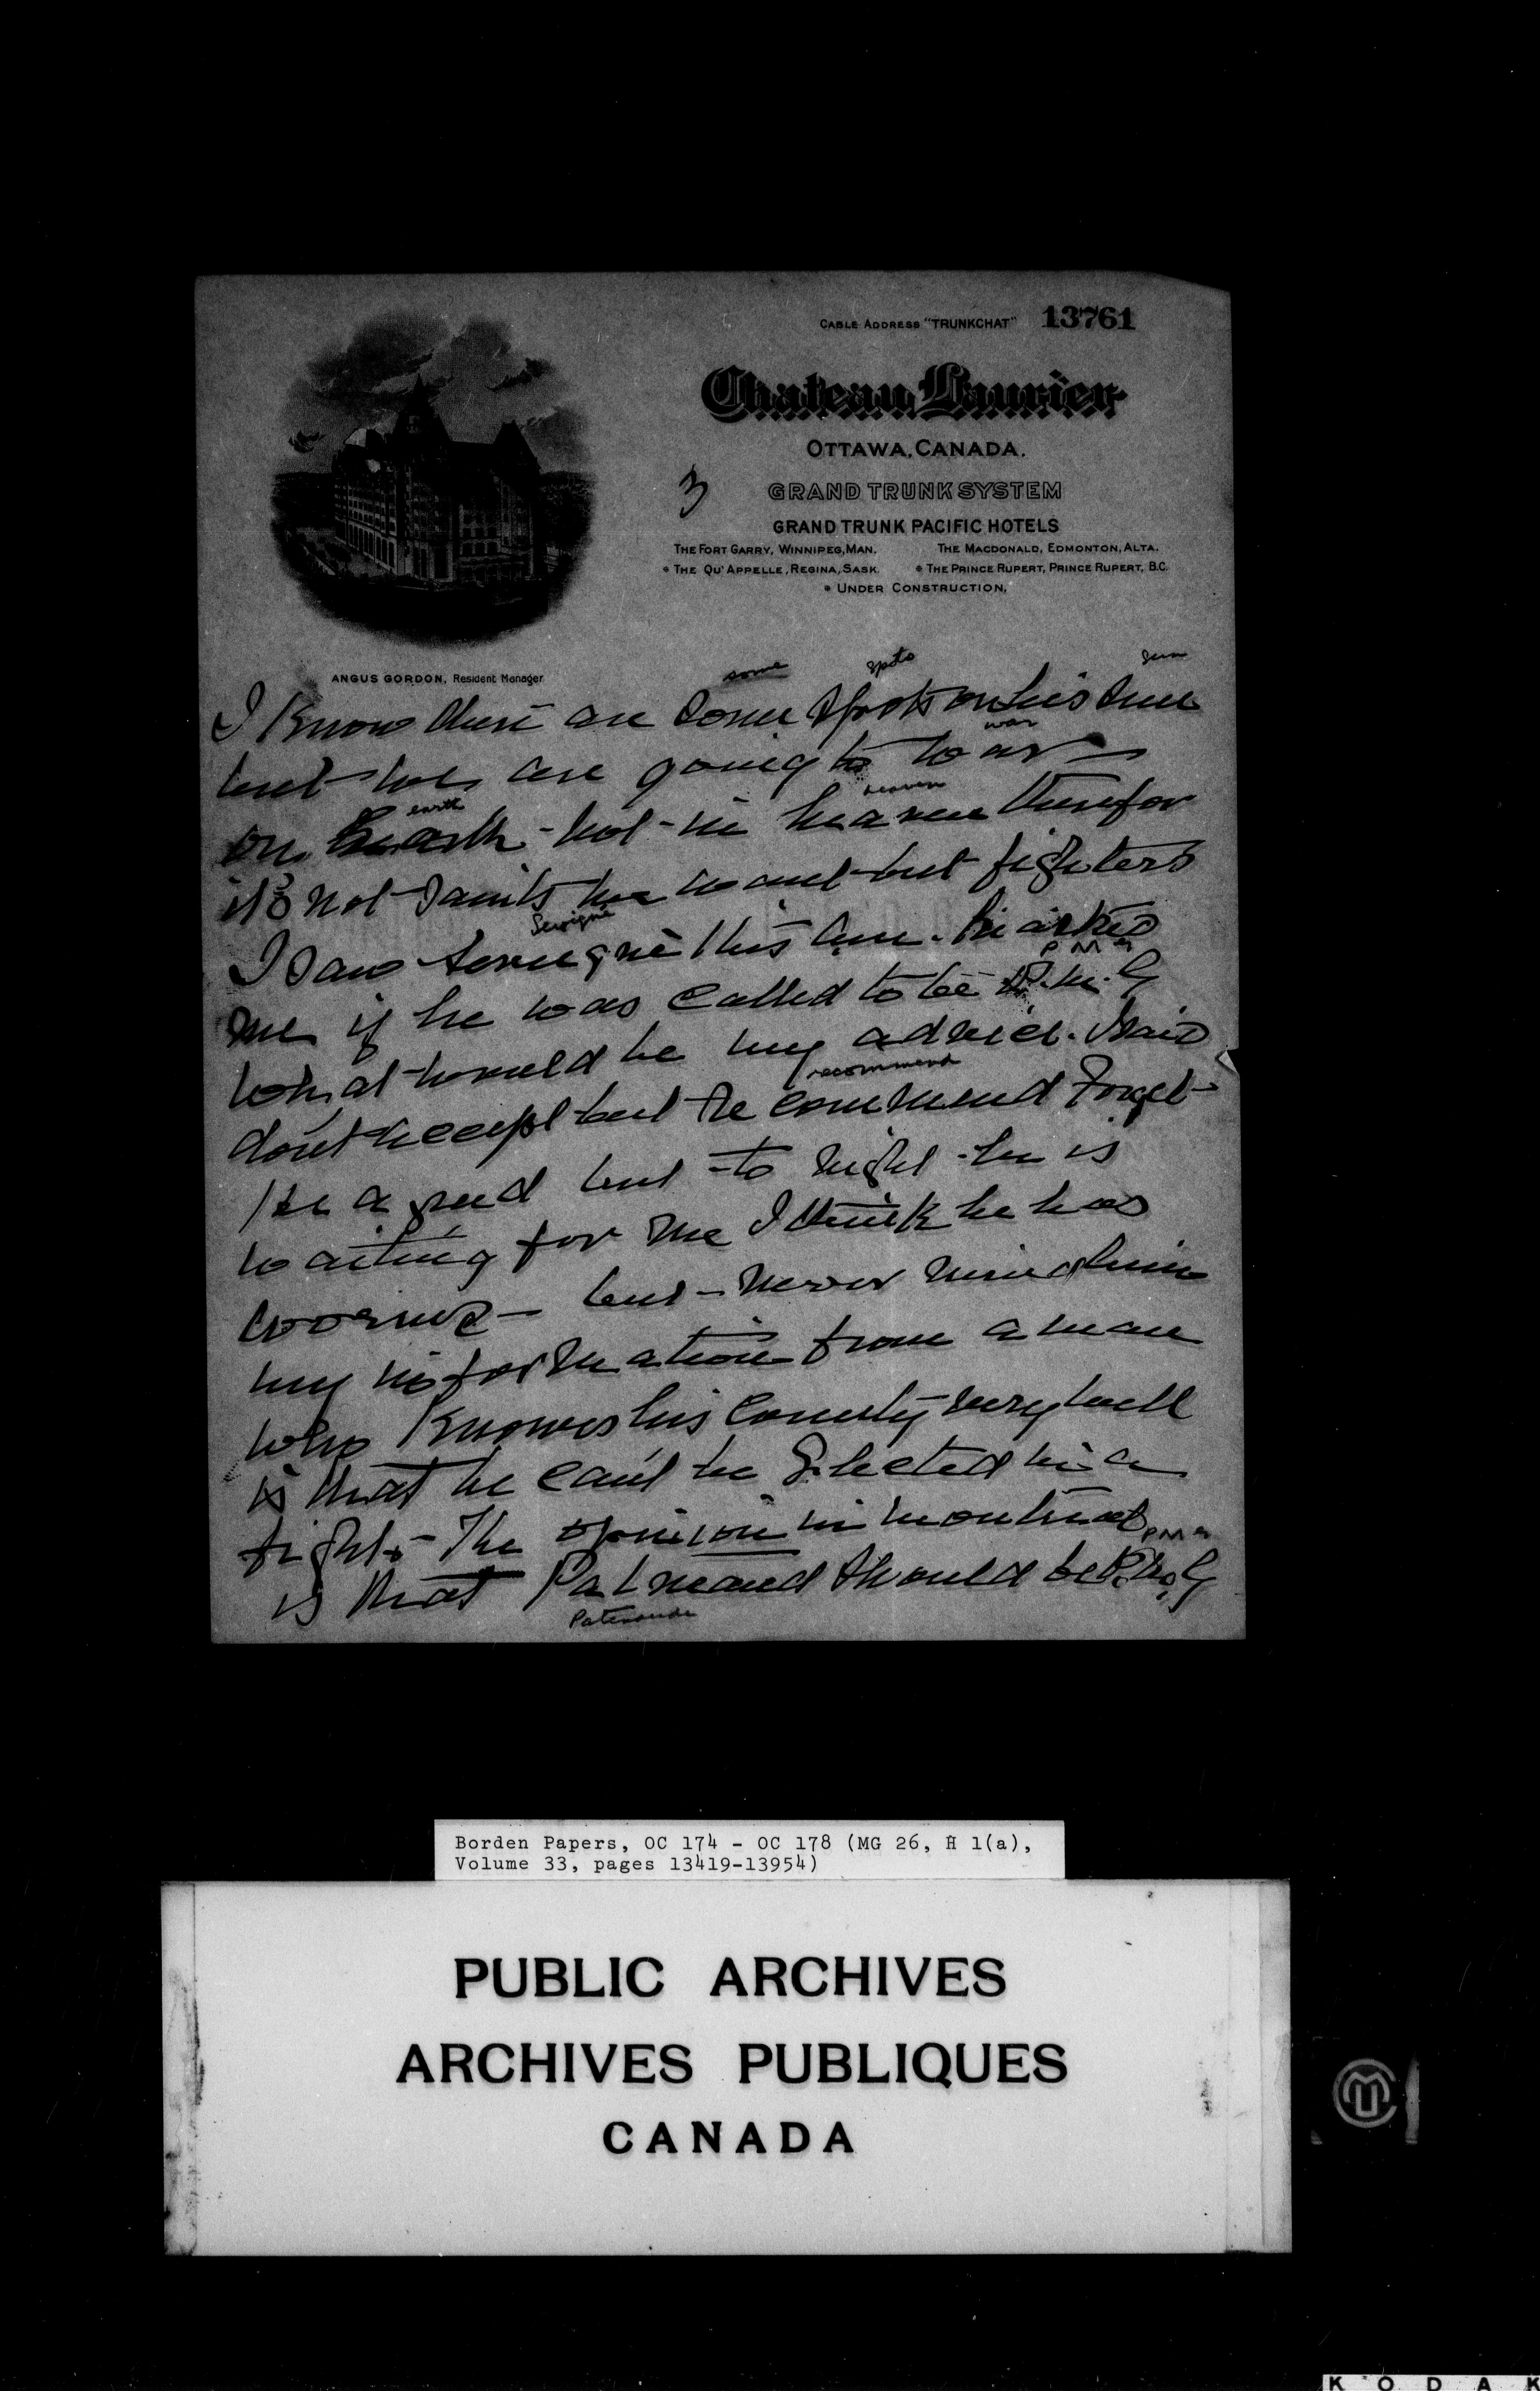 CABLE ADDRESS "TRUNKCHAT" 13761
Chateau Laurier
OTTAWA, CANADA.
3
GRAND TRUNK SYSTEM
GRAND TRUNK PACIFIC HOTELS
THE FORT GARRY, WINNIPEG, MAN. THE MACDONALD, EDMONTON, ALTA.
* THE QU'APPELLE, REGINA, SASK. * THE PRINCE RUPERT, PRINCE RUPERT, B.C.
* UNDER CONSTRUCTION.
ANGUS GORDON, Resident Manager
some spots sun
I know there are some spots on his sun
war
but we are going to war
earth heaven
on earth - not in heaven therefor
it's not saints we want but fighters
Sevigné
I saw Sevigné this am. he asked
PMG
me if he was called to be P.M.G
what would be my advice. I said
recommend
don't accept but recommend Forget
but to night he is
waiting for me I think he has
but never mind him
my information from a man
who knows his county very well
is that he can't be Elected in a
fight - The opinion in montreal
PMG
is that Patenaud should be P.M.G
Patenaude
Borden Papers, OC 174 - OC 178 (MG 26, H 1(a),
Volume 33, pages 13419-13954)
PUBLIC ARCHIVES
ARCHIVES PUBLIQUES
CANADA
KODAK